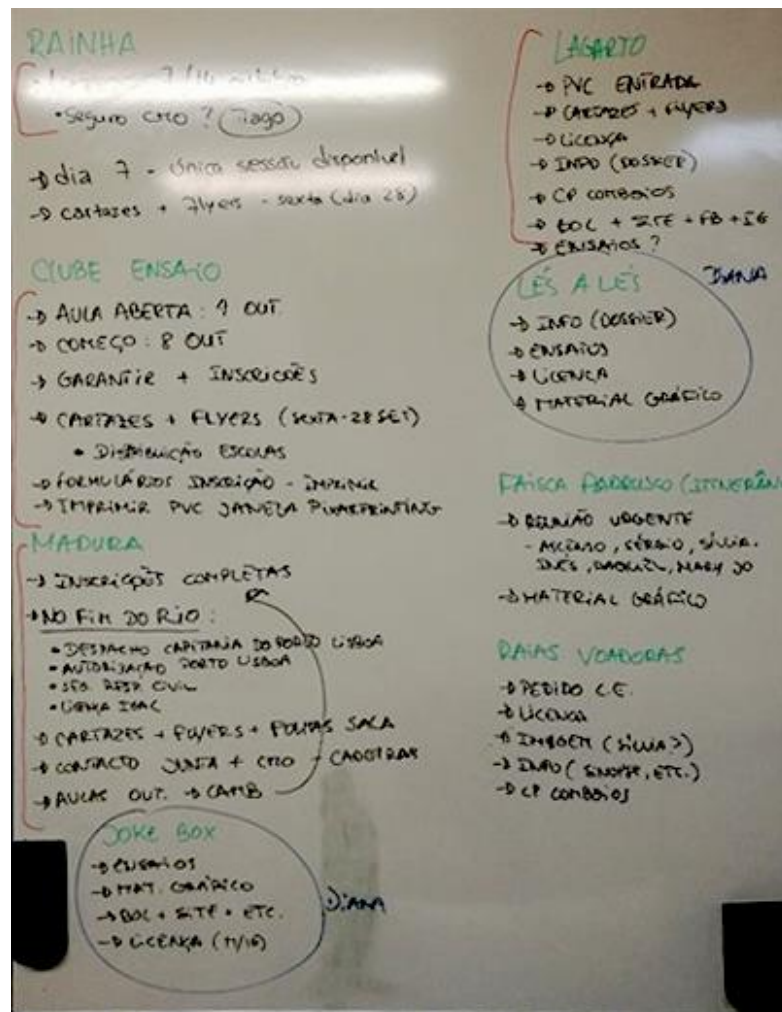 RAINHA
7/14
• Seguro CMO ? Tiago
→ dia 7 - única sessão disponível
→ cartazes + Flyers - sexta (dia 28)
CLUBE ENSAIO
→ AULA ABERTA : 1 OUT.
→ COMEÇO : 8 OUT
→ GARANTIR + INSCRIÇÕES
→ CARTAZES + FLYERS (SEXTA-28 SET)
• DISTRIBUIÇÃO ESCOLAS
→ FORMULÁRIOS INSCRIÇÃO - IMPRIMIR
→ IMPRIMIR PVC JANELA PIXARTPRINTING
MADURA
→ INSCRIÇÕES COMPLETAS
→ NO FIM DO RIO :
• DESPACHO CAPITANIA DO PORTO LISBOA
• AUTORIZAÇÃO PORTO LISBOA
• SEG. RESP. CIVIL
• LICENÇA IGAC
→ CARTAZES + FLYERS + FOLHAS SALA
→ CONTACTO JUNTA + CMO → CADEIRAS
→ AULAS OUT. → CAMB
JOKE BOX
→ ENSAIOS
→ MAT. GRÁFICO
→ BOL + SITE + ETC.
→ LICENÇA (M/16)
DIANA
LAGARTO
→ PVC ENTRADA
→ CARTAZES + FLYERS
→ LICENÇA
→ INFO (DOSSIER)
→ CP COMBOIOS
→ BOL + SITE + FB + IG
→ ENSAIOS ?
LÉS A LÉS
DIANA
→ INFO (DOSSIER)
→ ENSAIOS
→ LICENÇA
→ MATERIAL GRÁFICO
FAÍSCA (ITINERÂN
→ REUNIÃO URGENTE
- SÉRGIO, SÍLVIA.
INÊS, RAQUEL, MARY JO
→ MATERIAL GRÁFICO
RAIAS VOADORAS
→ PEDIDO C.E.
→ LICENÇA
→ IMAGEM (SÍLVIA?)
→ INFO (SINOPSE, ETC.)
→ CP COMBOIOS